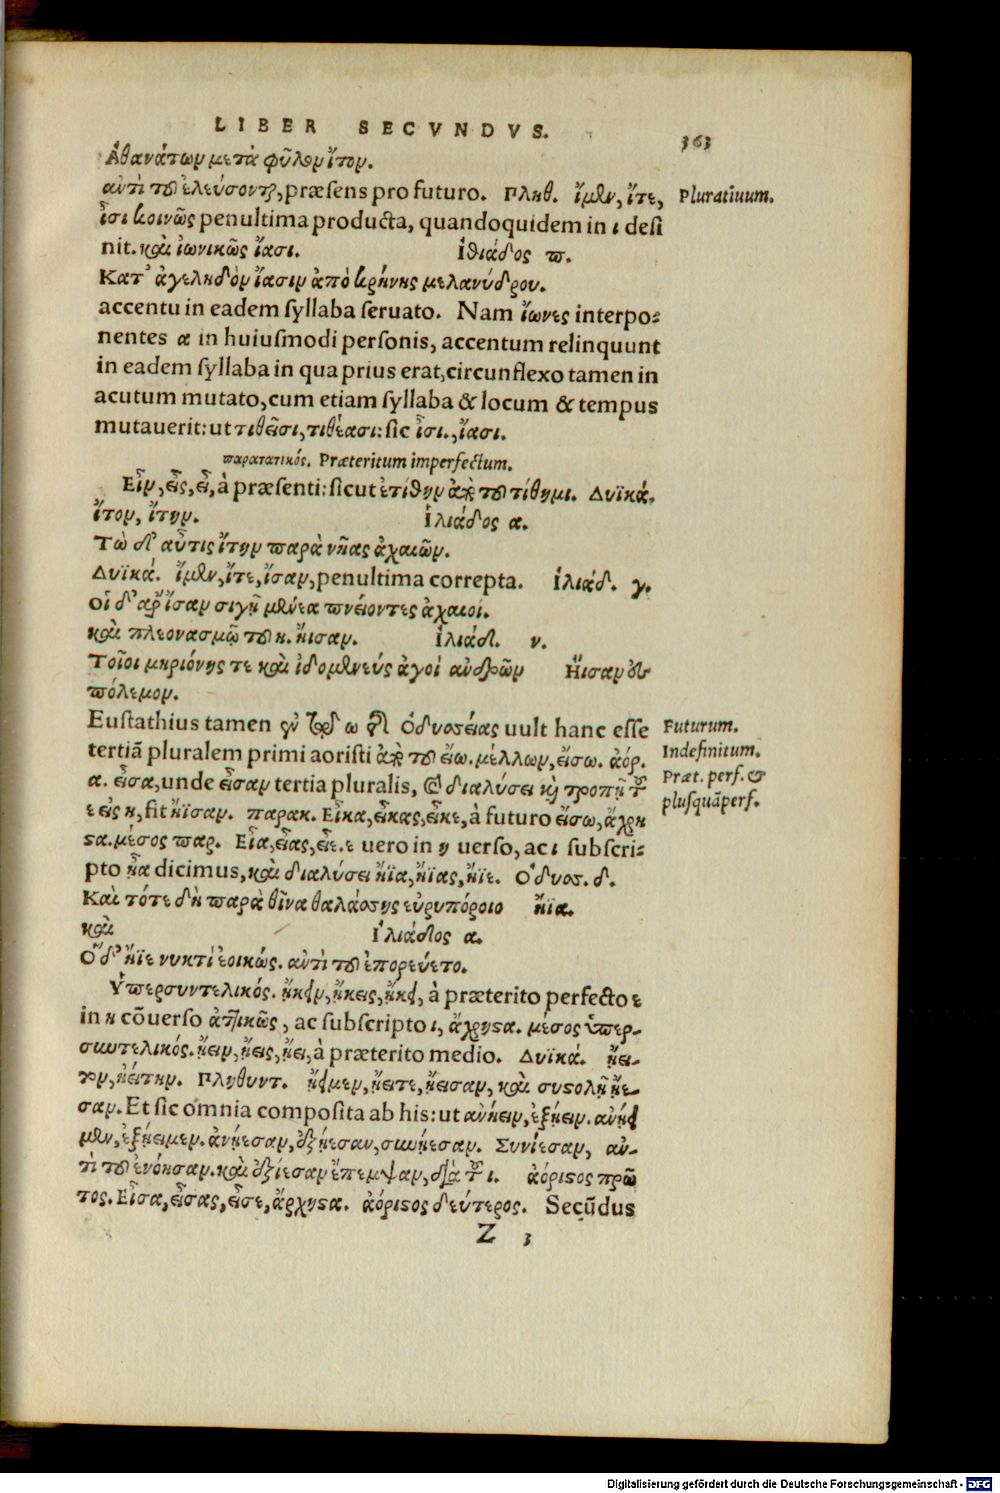 LIBER SECVNDVS.
363
Ἀθανάτων μετὰ φῦλον ἴτον.
ἀντὶ τοῦ ἐλεύσονται, præsens pro futuro. Πληθ. ἴμεν, ἴτε,
Pluratiuum.
ἶσι κοινῶς penultima producta, quandoquidem in ι desi
nit. καὶ ἰωνικῶς ἴασι. ἰλιάδος π.
Κατ' ἀγεληδὸν ἴασιν ἀπὸ κρήνης μελανύδρου.
accentu in eadem syllaba seruato. Nam ἴωνες interpo-
nentes α in huiusmodi personis, accentum relinquunt
in eadem syllaba in qua prius erat, circunflexo tamen in
acutum mutato, cum etiam syllaba & locum & tempus
mutauerit: ut τιθεῖσι, τιθέασι: sic ἶσι., ἴασι.
παρατατικός. Præteritum imperfectum.
Εἶν, εἶς, εἶ, à præsenti: sicut ἐτίθην ἀπὸ τοῦ τίθημι. Δυϊκά.
ἴτον, ἴτην. ἰλιάδος α.
Τὼ δ' αὖτις ἴτην παρὰ νῆας ἀχαιῶν.
Δυϊκά. ἴμεν, ἴτε, ἴσαν, penultima correpta. ἰλιάδ. γ.
οἱ δ' αρ' ἴσαν σιγῇ μένεα πνείοντες ἀχαιοί.
καὶ πλεονασμῷ τοῦ η. ἤισαν. ἰλιάδ. ν.
Τοῖοι μηριόνης τε καὶ ἰδομενεύς ἀγοὶ ανδρῶν Ἤισαν ἐς
πόλεμον.
Eustathius tamen ἐν τῷ ω τῆς Ὀδυσσείας uult hanc esse
Futurum.
tertiā pluralem primi aoristi ἀπὸ τοῦ εἴω. μέλλων, εἴσω. ἀόρ.
Indefinitum.
α. εἶσα, unde εἶσαν tertia pluralis, & διαλύσει κὶ τροπῇ τοῦ
Præt. perf. &
ε εἰς η, fit ἤϊσαν. παρακ. Εἶκα, εἶκας, εἶκε, à futuro εἴσω, ἄχρη
plusquāperf.
ςα. μέσος παρ. Εἶα, εἶας, εἶε. ε uero in η uerso, ac ι subscri-
pto ἦα dicimus, καὶ διαλύσει ἤϊα, ἤϊας, ἤϊε. Ὀδυσ. δ.
Καὶ τότε δὴ παρὰ θῖνα θαλάσσης εὐρυπόροιο ἤϊα.
καὶ ἰλιάδος α.
Ὁ δ' ἤϊε νυκτὶ ἐοικώς. αντὶ τοῦ ἐπορεύετο.
Ὑπερσυντελικός. ᾔκειν, ᾔκεις, ᾔκει, à præterito perfecto ε
in η cōuerso ἀττικῶς, ac subscripto ι, ἄχρηςα. μέσος ὑπερ-
συντελικός. ᾔειν, ᾔεις, ᾔει, à præterito medio. Δυϊκά. ᾔει-
τον, ᾐείτην. Πληθυντ. ᾔειμεν, ᾔειτε, ᾔεισαν, καὶ συςολῇ ᾔε-
σαν. Et sic omnia composita ab his: ut ανῄειν, ἐξῄειν. ανῄει
μεν, ἐξῄειμεν. ἀνῄεσαν, ἐξῄεσαν, συνῄεσαν. Συνίεσαν, αν-
τὶ τοῦ ἐνόησαν. καὶ ἐξίεσαν ἔπεμψαν, διὰ τοῦ ι. ἀόριςος πρῶ
τος. Εἶσα, εἶσας, εἶσε, ἄρχηςα. ἀόριςος δεύτερος. Secūdus
Z 3
Digitalisierung gefördert durch die Deutsche Forschungsgemeinschaft - DFG